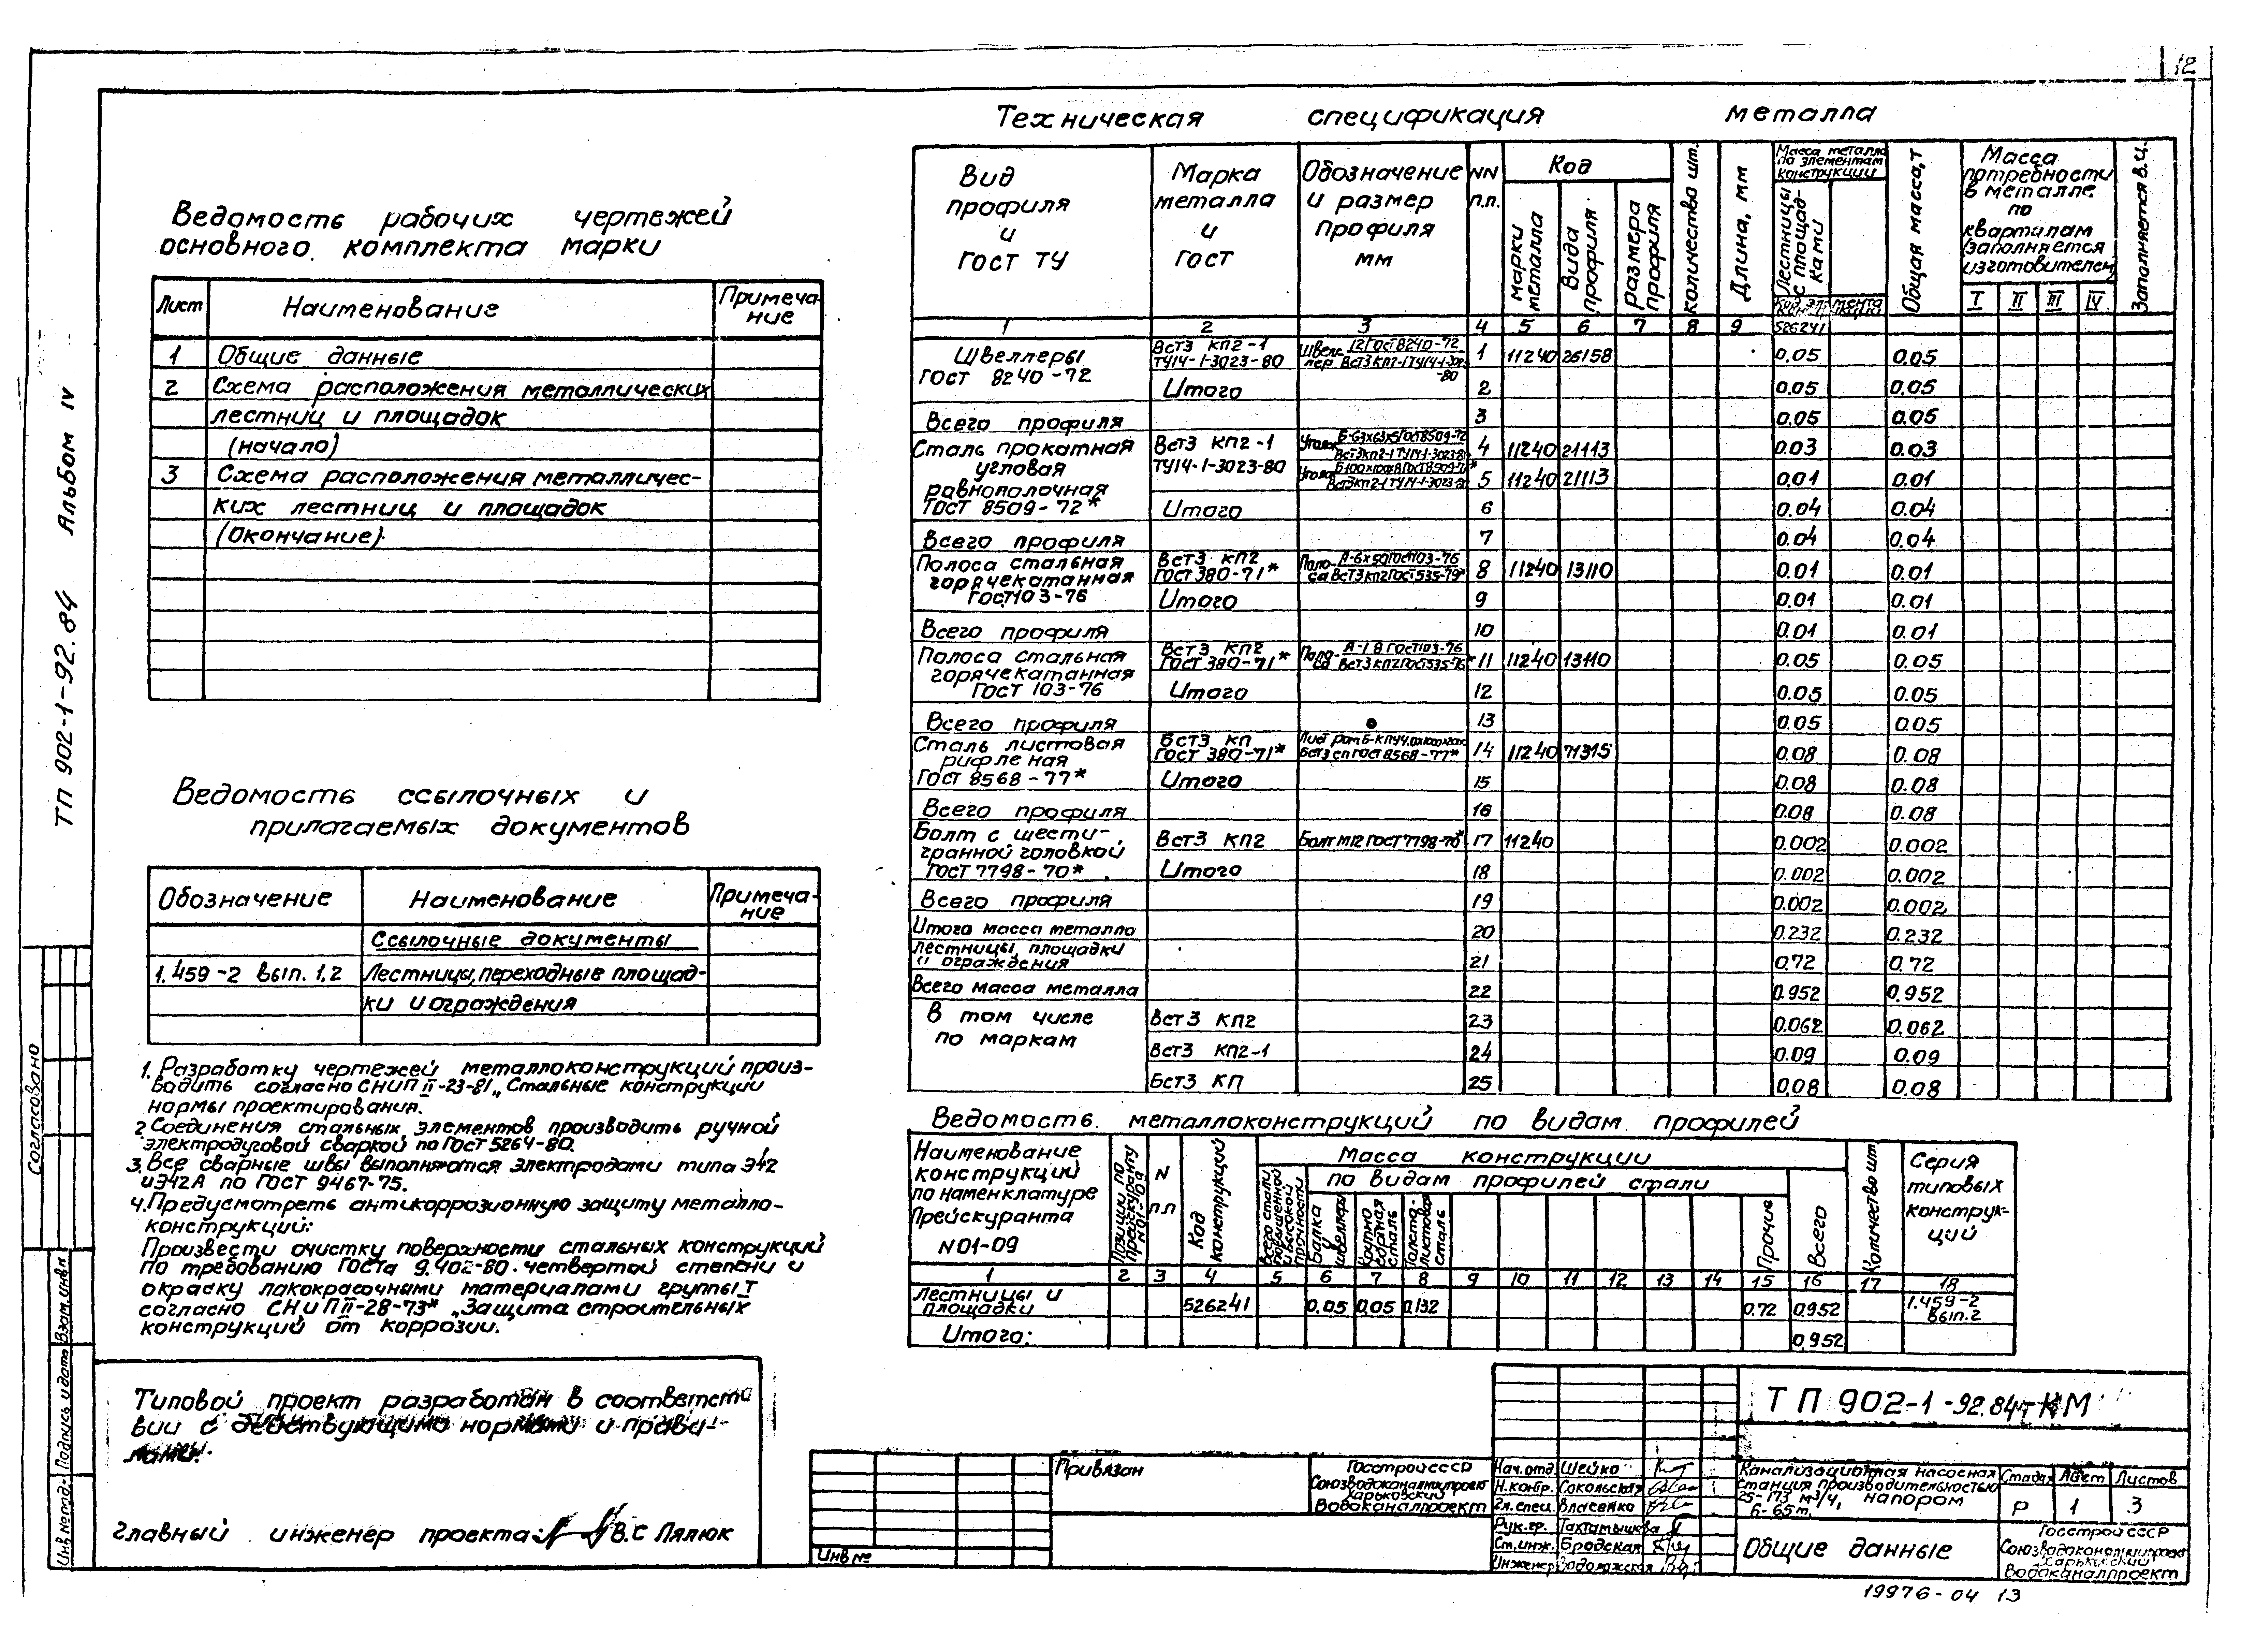 12
Техническая спецификация металла
Ведомость рабочих чертежей
основного комплекта марки
Лист Наименование Примеча-
ние
1 Общие данные
2 Схема расположения металлических
лестниц и площадок
(начало)
3 Схема расположения металличес-
ких лестниц и площадок
(Окончание).
Ведомость ссылочных и
прилагаемых документов
Обозначение Наименование Примеча-
ние
Ссылочные документы
1.459-2 вып. 1,2 Лестницы, переходные площад-
ки и ограждения
1. Разработку чертежей металлоконструкций произ-
водить согласно СНиП II-23-81 „Стальные конструкции
нормы проектирования.
2 Соединения стальных элементов производить ручной
электродуговой сваркой по ГОСТ 5264-80.
3. Все сварные швы выполняются электродами типа Э42
и Э42А по ГОСТ 9467-75.
4. Предусмотреть антикоррозионную защиту металло-
конструкций:
Произвести очистку поверхности стальных конструкций
по требованию ГОСТа 9.402-80 четвертой степени и
окраску лакокрасочными материалами группы I
согласно СНиП II-28-73* „Защита строительных
конструкций от коррозии.
Типовой проект разработан в соответст
вии с действующими нормами и прави-
лами.
главный инженер проекта: В.С Пялюк
ТП 902-1-92.84 Альбом IV
Согласовано
Инв № подл. Подпись и дата Взам. инв №
Вид
профиля
и
ГОСТ ТУ
Марка
металла
и
ГОСТ
Обозначение
и размер
профиля
мм
NN
п.п.
Код
марки металла
Вида профиля
Размера профиля
количества шт.
Длина, мм
Масса металла
по элементам
конструкции
Лестницы с площад-ками
Код элемента
Общая масса, т
Масса
потребности
в металле
по
кварталам
(заполняется
изготовителем)
I II III IV
Заполняется В.Ц.
1 2 3 4 5 6 7 8 9 526241
Швеллеры
ГОСТ 8240-72
ВСт3 кп2-1
ТУ14-1-3023-80
Швел- 12 ГОСТ 8240-72
лер ВСт3кп2-1ТУ14-1-302
-80
1 11240 26158 0.05 0.05
Итого 2 0.05 0.05
Всего профиля 3 0.05 0.05
Сталь прокатная
угловая
равнополочная
ГОСТ 8509-72*
ВСт3 кп2-1
ТУ14-1-3023-80
Уголок Б-63х63х5ГОСТ8509-72
ВСт3кп2-1 ТУ14-1-3023-80
4 11240 21113 0.03 0.03
Уголок Б100х100х8ГОСТ8509-72*
ВСт3кп2-1 ТУ14-1-3023-80
5 11240 21113 0.01 0.01
Итого 6 0.04 0.04
Всего профиля 7 0.04 0.04
Полоса стальная
горячекатанная
ГОСТ103-76
ВСт3 кп2
ГОСТ 380-71*
Поло- А-6х50ГОСТ103-76
са ВСт3кп2ГОСТ535-79*
8 11240 13110 0.01 0.01
Итого 9 0.01 0.01
Всего профиля 10 0.01 0.01
Полоса стальная
горячекатанная
ГОСТ 103-76
ВСт3 кп2
ГОСТ 380-71*
Поло- А-18 ГОСТ103-76
са ВСт3кп2ГОСТ535-76*
11 11240 13110 0.05 0.05
Итого 12 0.05 0.05
Всего профиля 13 0.05 0.05
Сталь листовая
рифленая
ГОСТ 8568-77*
БСт3 кп
ГОСТ 380-71*
Лист ромб-К
БСт3сп ГОСТ 8568-77*
14 11240 71315 0.08 0.08
Итого 15 0.08 0.08
Всего профиля 16 0.08 0.08
Болт с шести-
гранной головкой
ГОСТ 7798-70*
ВСт3 кп2 Болт М12 ГОСТ 7798-70* 17 11240 0.002 0.002
Итого 18 0.002 0.002
Всего профиля 19 0.002 0.002
Итого масса металла 20 0.232 0.232
Лестницы, площадки
и ограждения 21 0.72 0.72
Всего масса металла 22 0.952 0.952
В том числе
по маркам
ВСт3 кп2 23 0.062 0.062
ВСт3 кп2-1 24 0.09 0.09
БСт3 кп 25 0.08 0.08
Ведомость металлоконструкций по видам профилей
Наименование
конструкций
по номенклатуре
Прейскуранта
N01-09
Позиции по прейскуранту N01-09
N
п.п
Код конструкций
Масса конструкции
по видам профилей стали
Всего стали повышенной и высокой прочности
Балка швеллеры
Крупно сортная сталь
Толсто-листовая сталь
Прочие
Всего
Количество шт.
Серия
типовых
конструк-
ций
1 2 3 4 5 6 7 8 9 10 11 12 13 14 15 16 17 18
Лестницы и
площадки 526241 0,05 0,05 0,132 0,72 0,952 1.459-2
вып.2
Итого: 0,952
ТП 902-1-92.84-КМ
Привязан
Инв №
Госстрой СССР
Союзводоканалпроект
Харьковский
Водоканалпроект
Нач.отд. Шейко
Н.контр. Сокольская
Гл.спец. Власенко
Рук.гр. Тахтамышева
Ст.инж. Бродская
Инженер Водолажская
Канализационная насосная
станция производительностью
25-173 м³/ч, напором
6-65 м.
Стадия Лист Листов
Р 1 3
Общие данные
Госстрой СССР
Союзводоканалпроект
Харьковский
Водоканалпроект
19976-04 13